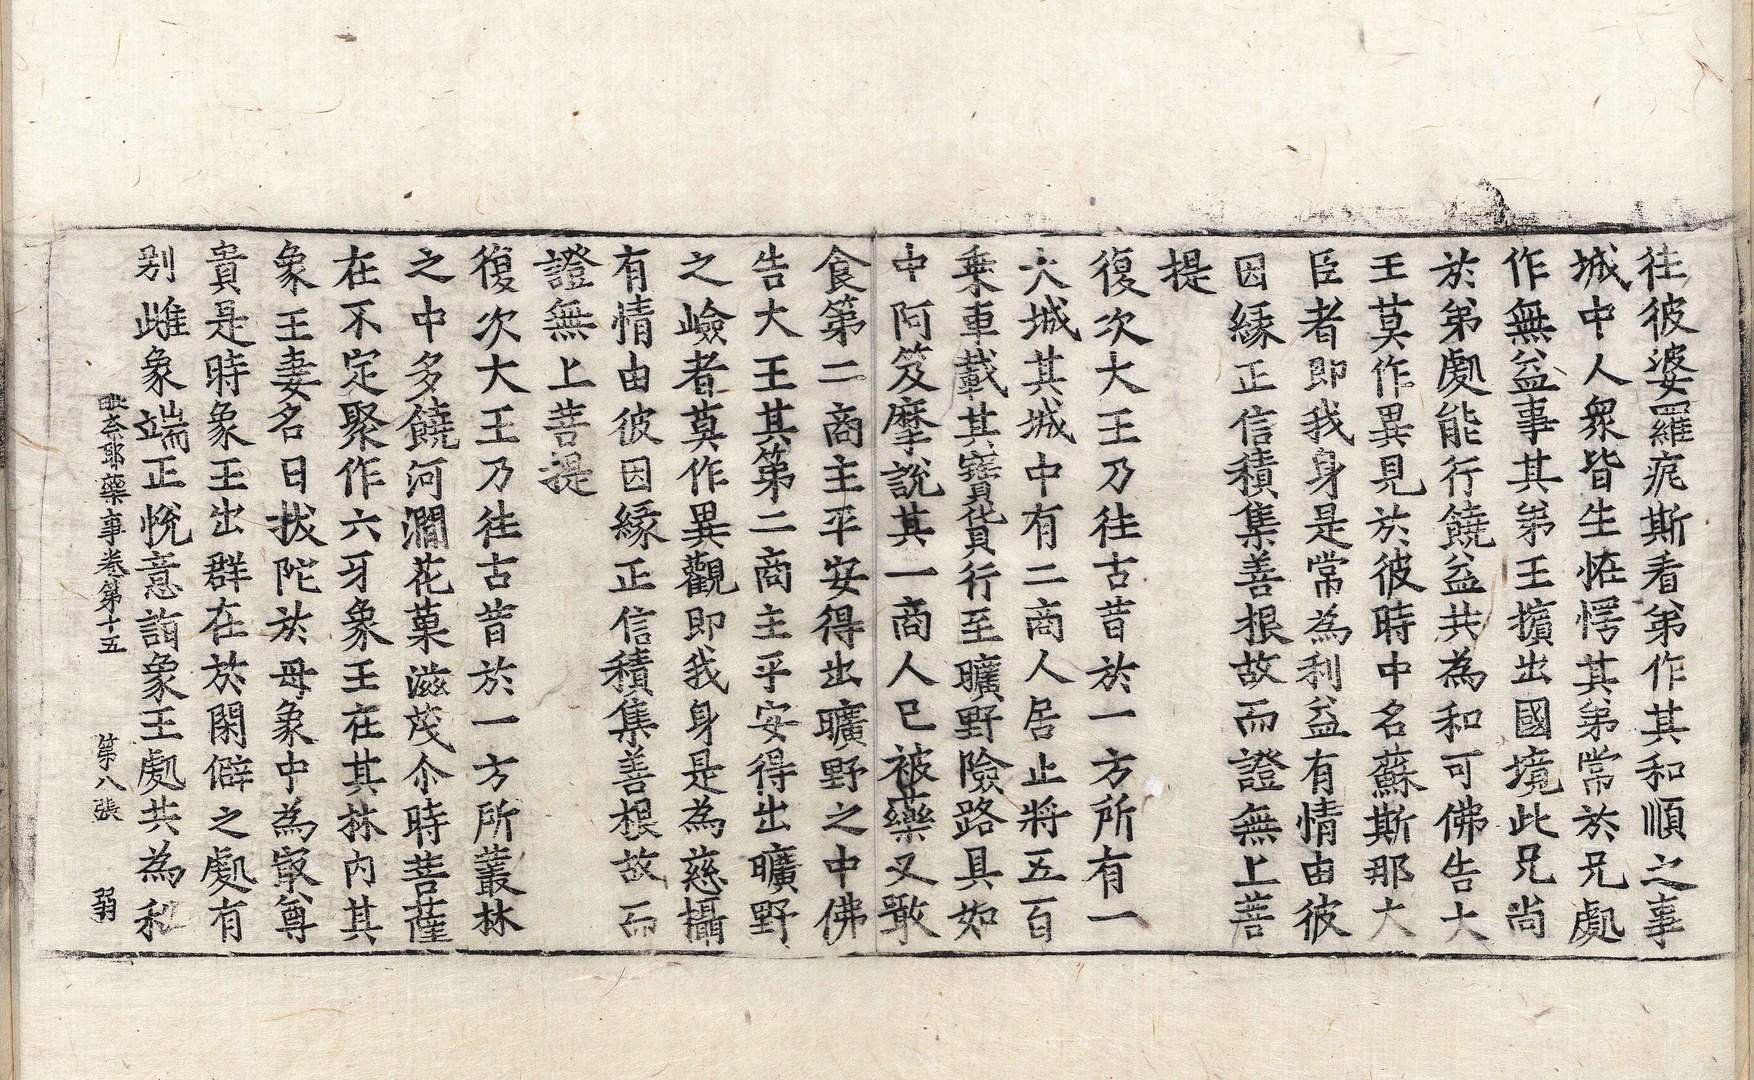 往彼婆羅痆斯看弟作其和順之事
城中人衆皆生恠愕其弟常於兄處
作無益事其弟王擯出國境此兄尚
於弟處能行饒益共為和可佛告大
王莫作異見於彼時中名蘇斯那大
臣者即我身是常為利益有情由彼
因緣正信積集善根故而證無上菩
提
復次大王乃往古昔於一方所有一
大城其城中有二商人居止將五百
乗車載其寶貨行至曠野險路具如
中阿笈摩說其一商人已被藥叉敢
食第二商主平安得出曠野之中佛
告大王其第二商主平安得出曠野
之嶮者莫作異觀即我身是為慈攝
有情由彼因緣正信積集善根故而
證無上菩提
復次大王乃往古昔於一方所叢林
之中多饒河澗花菓滋茂尒時菩薩
在不定聚作六牙象王在其林內其
象王妻名曰拔陀於母象中為㝡尊
貴是時象王出群在於閑僻之處有
别雌象端正悅意詣象王處共為私
奈耶藥事卷第十五 第八張 弱